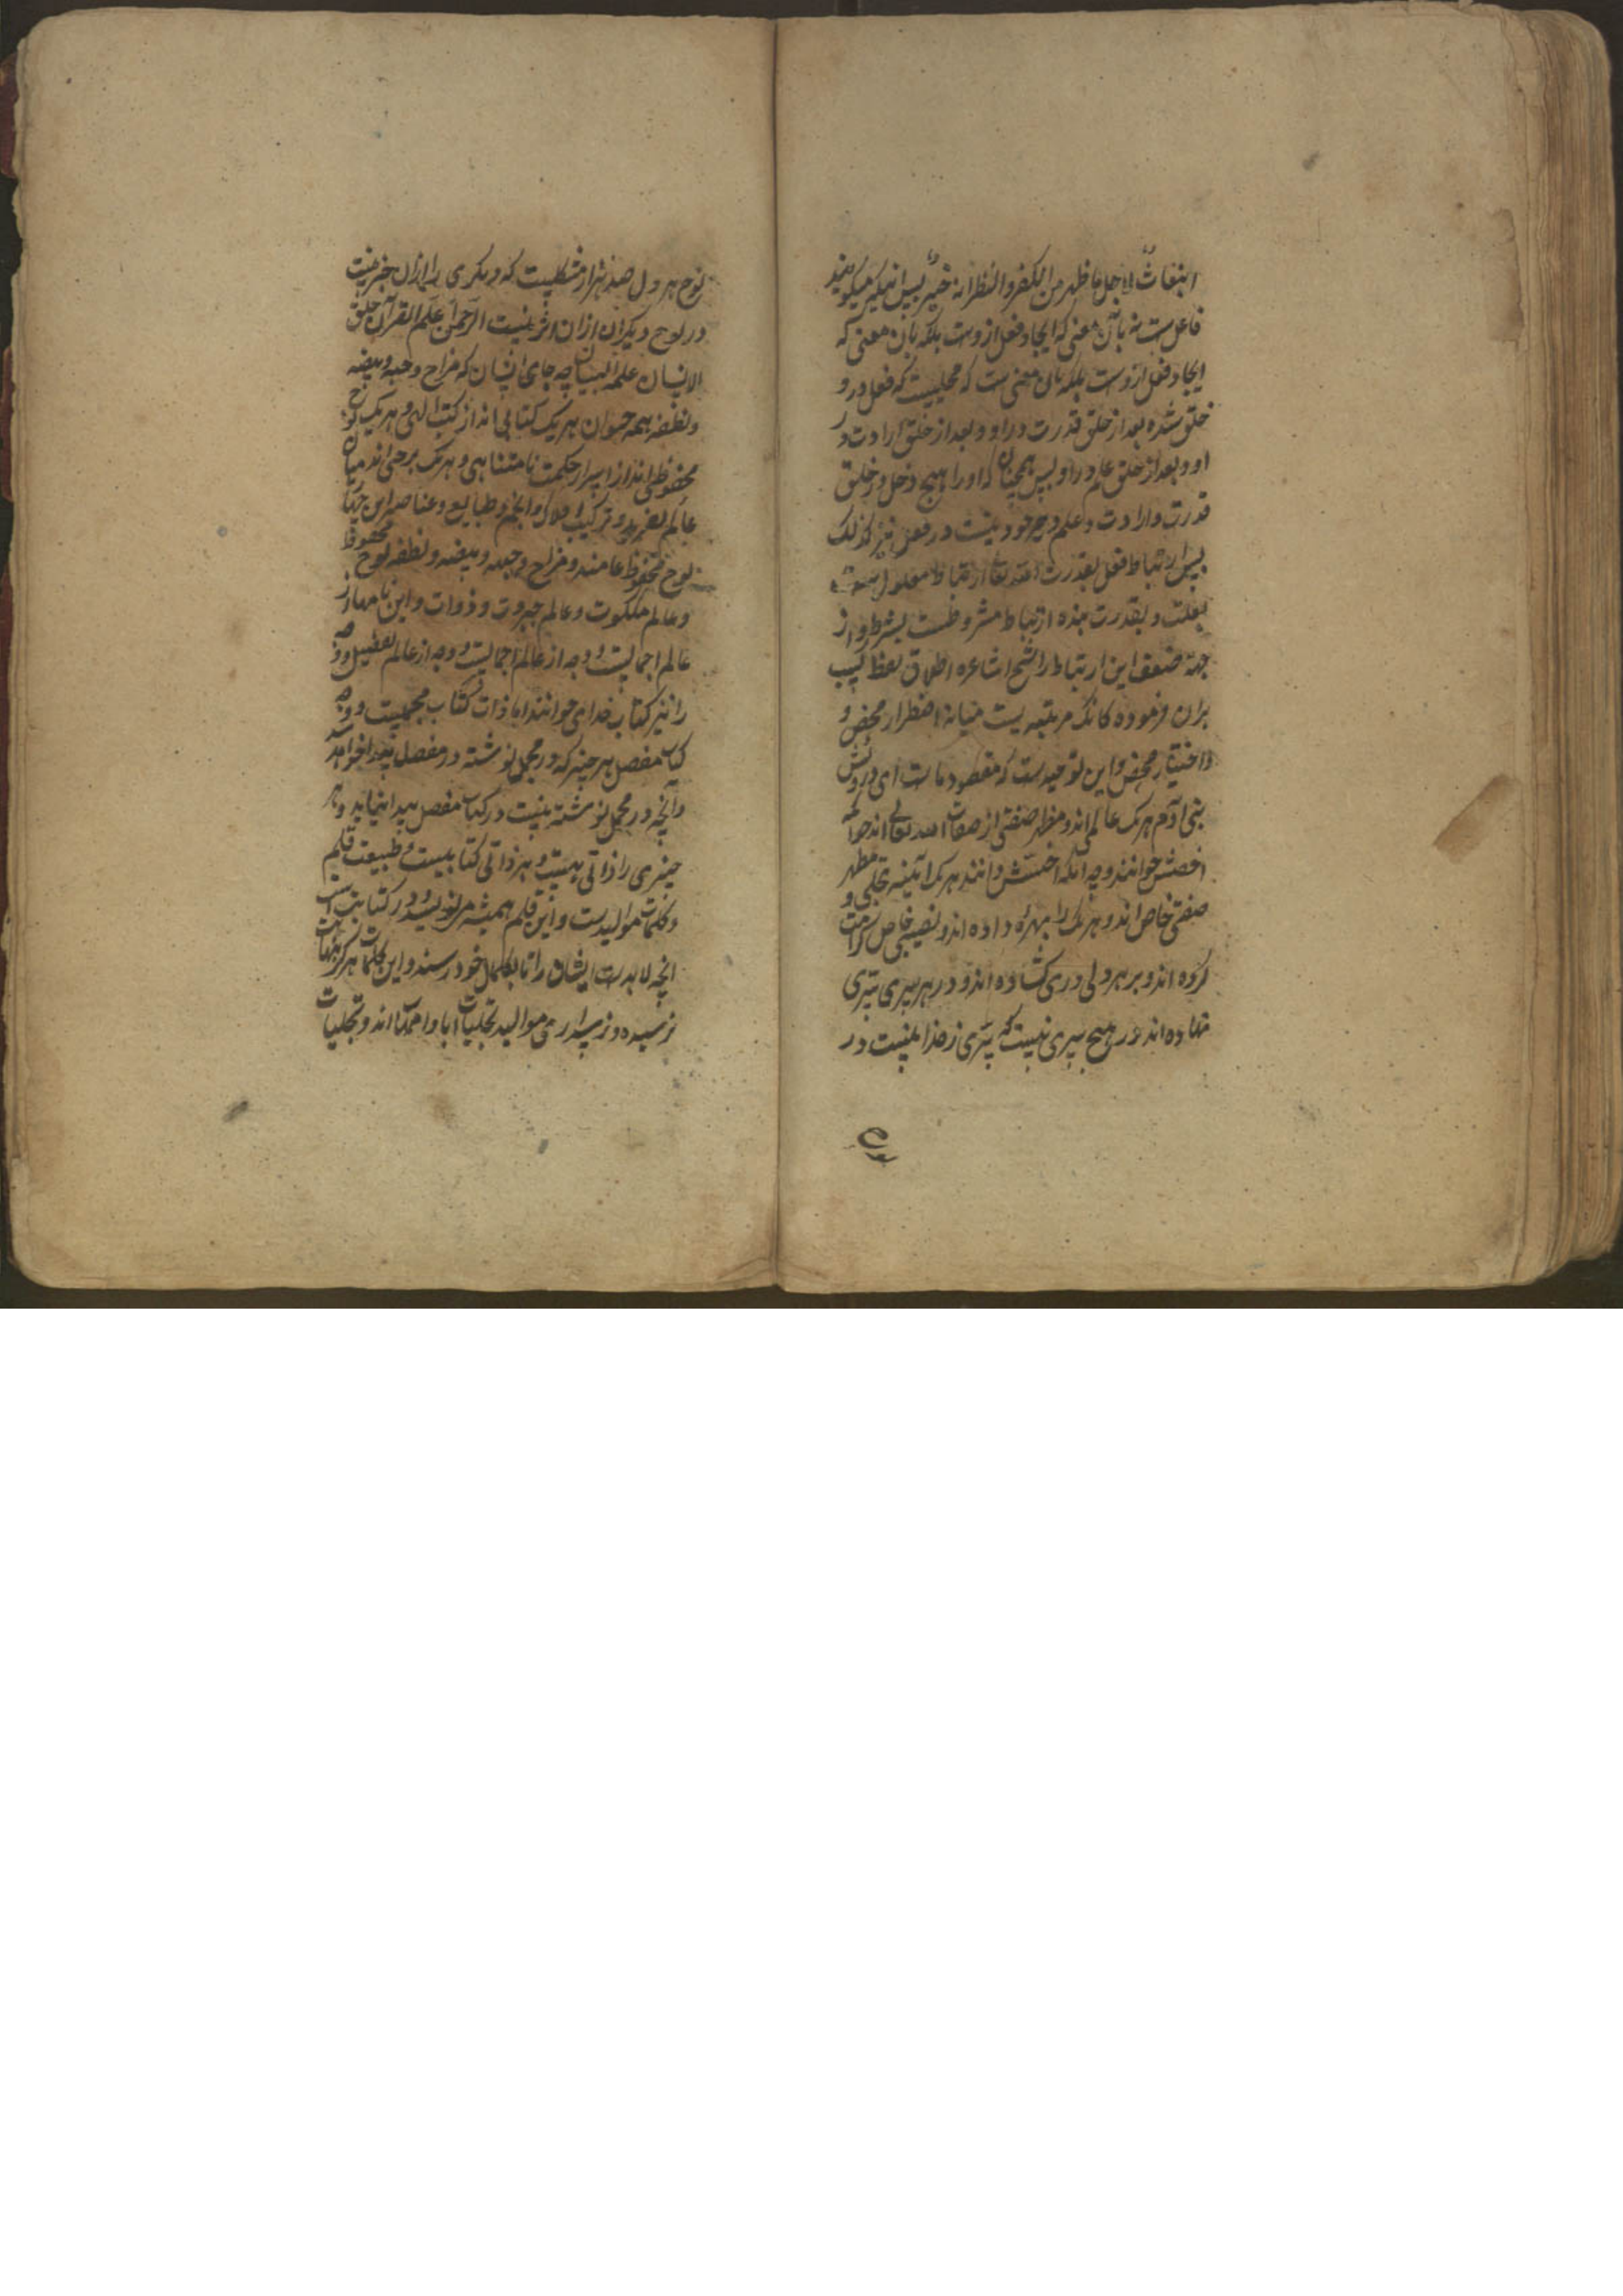 فاعل ست نه بآن معنی که ایجاد فعل ازوست بلکه بان معنی که
ایجاد فعل ازوست بلکه بان معنی ست که محلیست که فعل درو
خلق شده بعد از خلق قدرت در او و بعد از خلق ارادت در
او و بعد از خلق علم در او پس همچنان که او را هیچ دخل در خلق
قدرت و ارادت و علم در خود نیست در فعل نیز کذلک
پس ارتباط فعل بقدرت الله تعا ارتباط معلول ست
بعلت و بقدرت بنده ارتباط مشروطست بشرط و از
جهة ضعف این ارتباط را شیخ اشاعره اطلاق لفظ کسب
بران فرموده کانک مرتبه یست میانهٔ اضطرار محض و
اختیار محض و این توحیدست که مقصود ماست ای درویش
بنی آدم هر یک عالمی اند و مظهر صفتی از صفات الله تعالی اند خواه که
اخصش خوانند و چه آنکه اخسش دانند هر یک آینه تجلی و مظهر
صفتی خاص اند و هر یک را بهره داده اند و نصیبی خاص کرامت
کرده اند و بر هر دلی دری کشاده اند و در هر سری سری
نهاده اند در هیچ سری نیست که سری ز خدا نیست در
لوح هر دل صد هزار مشکلیست که دیکری را ازان خبر نیست
در لوح دیکران ازان اثر نیست الرحمن علم القرآن خلق
الانسان علمه البیان چه جای انسان که مزاج و حبه و بیضه
و نطفه همه حیوان هر یک کتابی اند از کتب الهی و هر یک لوح
محفوظی اند از اسرار حکمت نامتناهی و هر یک برزخی اند میان
عالم تفرید و ترکیب افلاک و انجم و طبایع و عناصر این جهان
لوح محفوظ عامند و مزاج و حبه و بیضه و نطفه لوح محفوظ
و عالم ملکوت و عالم جبروت و ذوات و این نامها از
عالم اجمالیست و وجه از عالم اجمالیست و وجه از عالم تفصیل و وجه
را نیز کتاب خدا می خوانند اما ذات کتاب مجملیست و وجه
کتاب مفصل هر چیز که در مجمل نوشته در مفصل پیدا خواهد شد
و آنچه در مجمل نوشته نیست در کتاب مفصل پیدا نیاید و هر
چیزی را ذاتی هست و هر ذاتی کتابیست و طبیعت قلم
و کلمات موالیدست و این قلم همیشه در کتابت است
انچه لابدست ایشان را تا بکمال خود رسند و این کلمات هرکز بنهایت
نرسیده و نرسد موالید تجلیات ابا و امهات اند و تجلیات